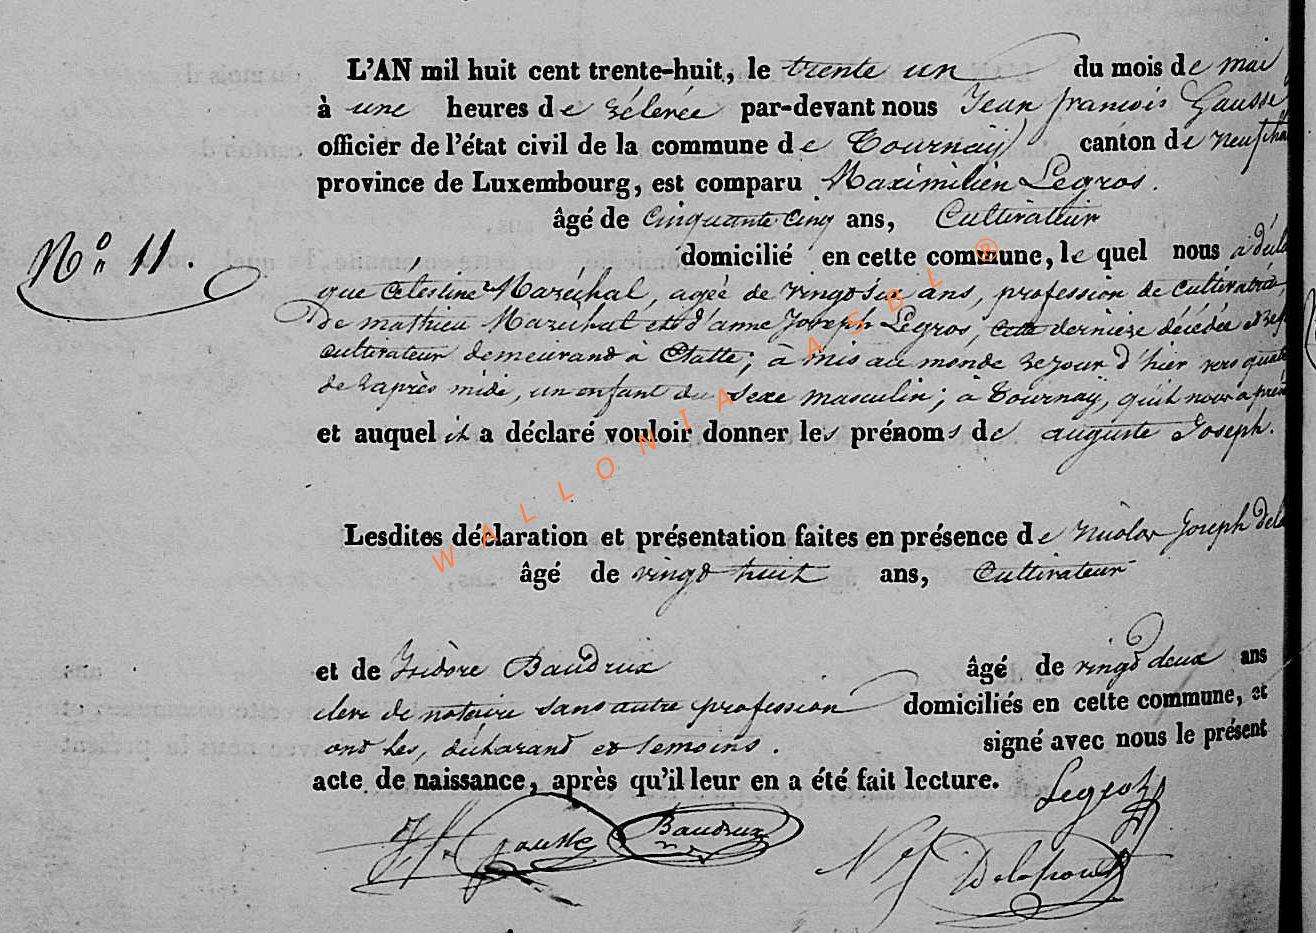 L'AN mil huit cent trente-huit, le trente un du mois de mai
à une heures de rélevée par-devant nous Jean françois Gausse
officier de l'état civil de la commune de Tournay canton de neufchâ
province de Luxembourg, est comparu Maximilien Legros.
âgé de Cinquante Cinq ans, Cultivateur
N° 11.
domicilié en cette commune, le quel nous a décla
que Celestine Maréchal, agée de vingt six ans, profession de cultivatrice,
de mathieu Maréchal et d'anne Joseph Legros, cette derniere décédée et
cultivateur demeurant à Ebly; à mis au monde le jour d'hier vers quatre
de l'après midi, un enfant du sexe masculin; à Tournay, qu'il nous a présen
et auquel il a déclaré vouloir donner les prénoms de auguste Joseph.
Lesdites déclaration et présentation faites en présence de nicolas Joseph dela
âgé de vingt huit ans, Cultivateur
et de Isidore Baudrux âgé de vingt deux ans
clerc de notaire sans autre profession domiciliés en cette commune, et
ont les, déclarant et temoins. signé avec nous le présent
acte de naissance, après qu'il leur en a été fait lecture.
Legros
J f. Gausse Baudrux
N J Delahout
WALLONIA ASBL ®